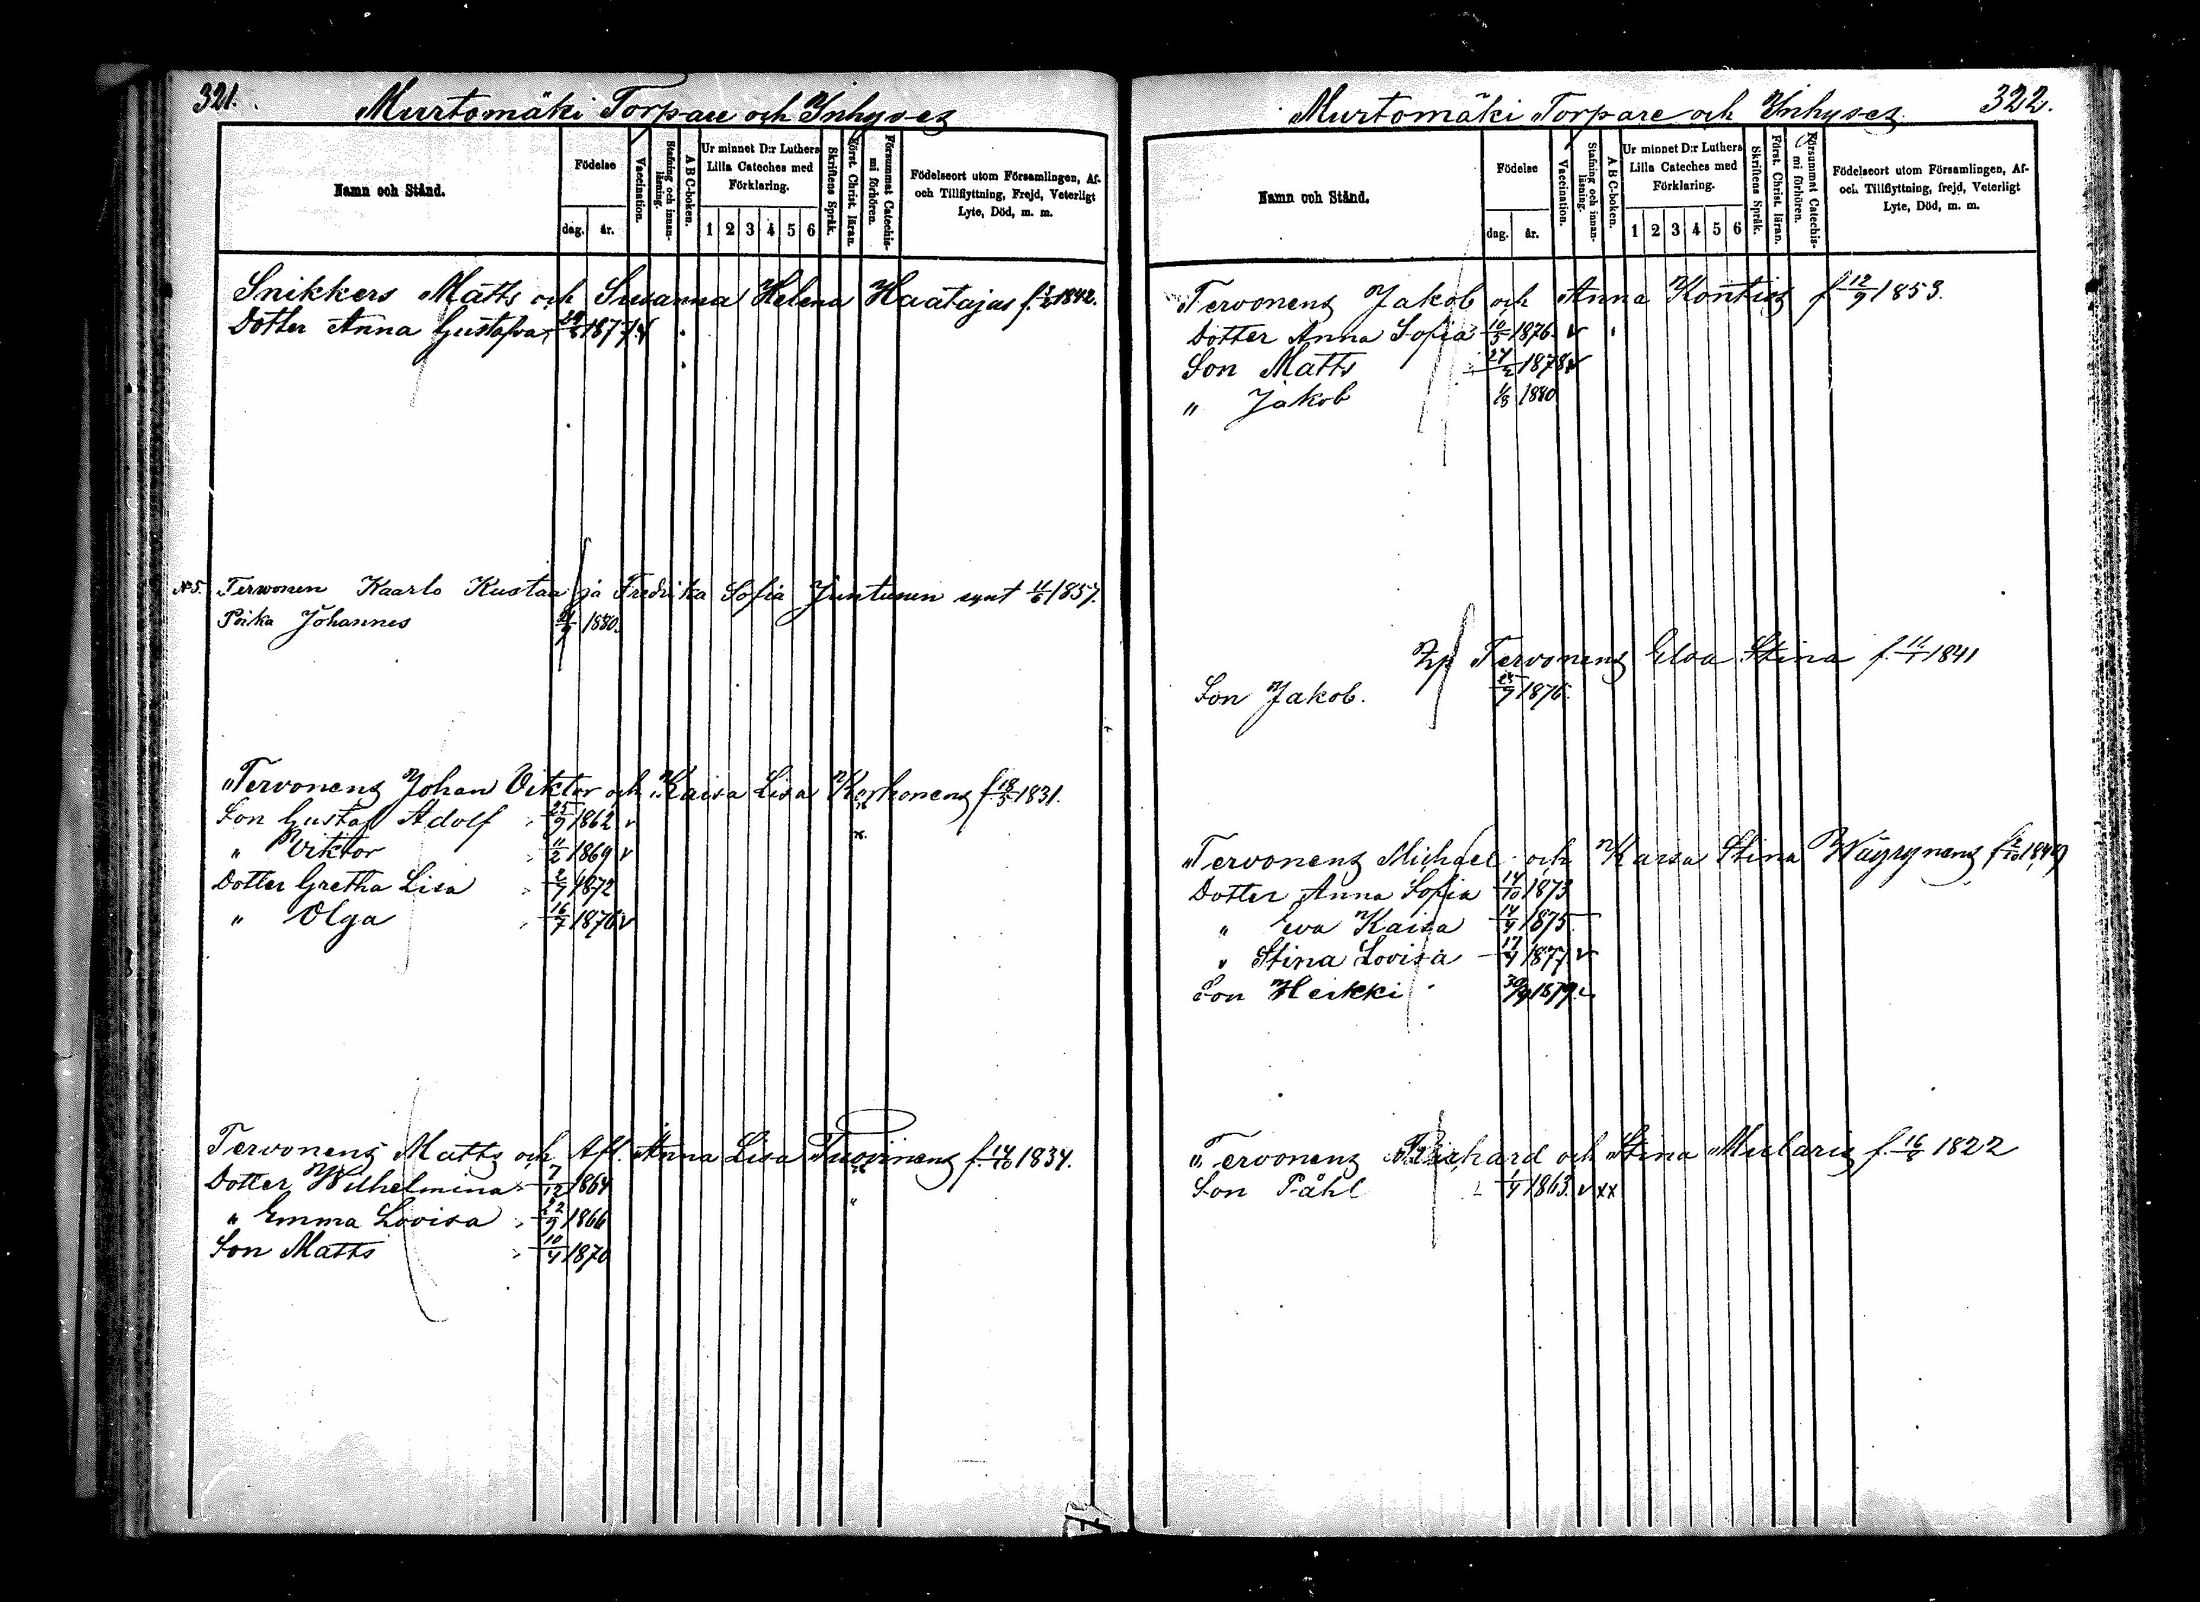 321.
Murtomäki Torpare och Inhyses
Namn och Stånd.
Födelse
dag.
år.
Vaccination.
Stafning och innan-
läsning.
A B C-boken.
Ur minnet D:r Luthers
Lilla Cateches med
Förklaring.
1 2 3 4 5 6
Skriftens Språk.
Först. Christ. läran.
Försummat Catechis-
mi förhören.
Födelseort utom Församlingen, Af-
och Tillflyttning, Frejd, Veterligt
Lyte, Död, m. m.
Snikkers Matts och Susanna Helena Haatajas f. 1842.
Dotter Anna Gustafva 1877 v
No 5. Terwonen Kaarlo Kustaa ja Fredrika Sofia Juntunen synt 11/6 1857.
Poika Johannes 1880.
"Tervonens Johan Viktor och Kaisa Lisa Korhonens f. 18/5 1831.
Son Gustaf Adolf 25/9 1862 v
" Viktor 11/2 1869 v
Dotter Gretha Lisa 2/7 1872
" Olga 16/7 1876 v
Tervonens Matts och Afl. Anna Lisa Tuovinens f. 14/10 1834.
Dotter Wilhelmina 7/12 1864
" Emma Lovisa 22/9 1866
Son Matts 10/4 1870
322.
Murtomäki Torpare och Inhyses
Namn och Stånd.
Födelse
dag.
år.
Vaccination.
Stafning och innan-
läsning.
A B C-boken.
Ur minnet D:r Luthers
Lilla Cateches med
Förklaring.
1 2 3 4 5 6
Skriftens Språk.
Först. Christ. läran.
Försummat Catechis-
mi förhören.
Födelseort utom Församlingen, Af-
och Tillflyttning, frejd, Veterligt
Lyte, Död, m. m.
Tervonens Jakob och Anna Kontios f. 12/9 1853.
Dotter Anna Sofia 10/5 1876. v
Son Matts 27/2 1878 v
" Jakob 1880
Tervonens Elsa Stina f. 1841
Son Jakob. 1876.
"Tervonens Michael och Kaisa Stina Wäyrynens f.
Dotter Anna Sofia 14/10 1873
" Eva Kaisa 14/9 1875
" Stina Lovisa 17/4 1877 v
Son Heikki 30/9 1879. v
"Tervonens Richard och Stina Mularis f. 16/8 1822
Son Påhl 1/4 1863. v xx